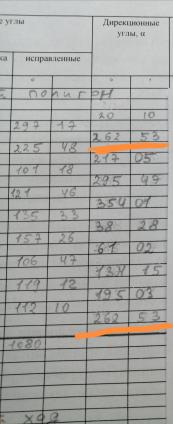 е углы
Дирекционные
углы, α
ка
исправленные
° ' ° '
полигон
20 10
297 17
262 53
225 48
217 05
101 18
295 47
121 46
354 01
135 33
38 28
157 26
61 02
106 47
134 15
119 12
195 03
112 10
262 53
1080
ход